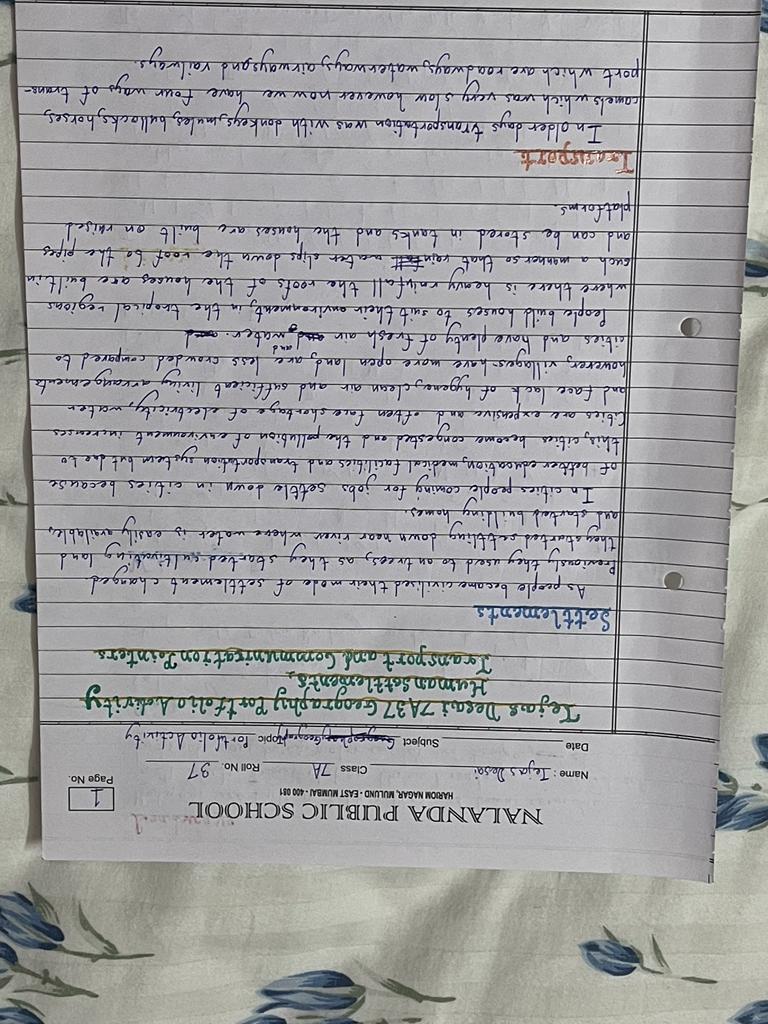 NALANDA PUBLIC SCHOOL
HARIOM NAGAR, MULUND - EAST MUMBAI - 400 081
1
Page No.
Name : Tejas Desai Class 7A Roll No. 37
Date Subject Geography Topic Portfolio Activity
Tejas Desai 7A37 Geography Portfolio Activity
Human Settlements,
Transport and Communication Pointers
Settlements
As people became civilised their mode of settlement changed.
Previously they used to on trees, as they started cultivating land
they started settling down near river where water is easily available,
and started building homes.
In cities people coming for jobs settle down in cities because
of better education, medical facilities and transportation system but due to
this, cities become congested and the pollution of environment increases
Cities are expensive and often face shortage of electricity, water
and face lack of hygene, clean air and sufficient living arrangements
however, villages have more open land, are less crowded compared to
cities and have plenty of fresh air and water.
People build houses to suit their environment, in the tropical regions
where there is heavy rainfall the roofs of the houses are built in
such a manner so that rain water slips down the roof to the pipes
and can be stored in tanks and the houses are built on raised
platforms.
Transport
In older days transportation was with donkeys, mules, bullocks, horses,
camels which was very slow however now we have four ways of trans-
port which are roadways, waterways, airways and railways.